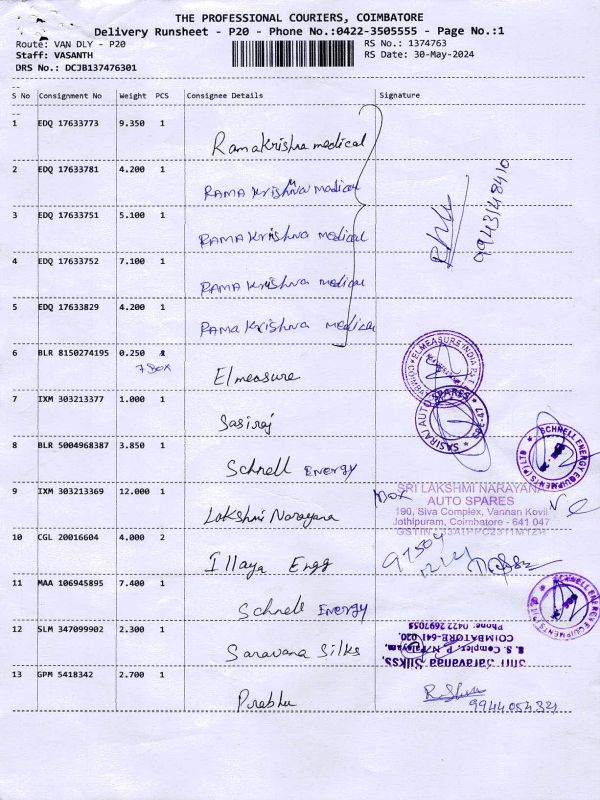 THE PROFESSIONAL COURIERS, COIMBATORE
Delivery Runsheet - P20 - Phone No.:0422-3505555 - Page No.:1
Route: VAN DLY - P20
RS No.: 1374763
Staff: VASANTH
RS Date: 30-May-2024
DRS No.: DCJB137476301
S No Consignment No Weight PCS Consignee Details Signature
1 EDQ 17633773 9.350 1
Ramakrishna medical
2 EDQ 17633781 4.200 1
RAMA Krishna medical
3 EDQ 17633751 5.100 1
RAMA Krishna medical
4 EDQ 17633752 7.100 1
RAMA Krishna medical
5 EDQ 17633829 4.200 1
RAMA Krishna medical
6 BLR 8150274195 0.250
7 Box
Elmeasure
ELMEASURE INDIA
7 IXM 303213377 1.000 1
Sasiraj
SASIRAJ AUTO SPARES
8 BLR 5004968387 3.850 1
Schnell ENERGY
SCHNELL ENERGY EQUIPMENTS (P) LTD
9 IXM 303213369 12.000 1
Lakshmi Narayana
SRI LAKSHMI NARAYANA
AUTO SPARES
190, Siva Complex, Vannan Kovil
Jothipuram, Coimbatore - 641 047
10 CGL 20016604 4.000 2
Illaya Engg
11 MAA 106945895 7.400 1
Schnell ENERGY
SCHNELL ENERGY EQUIPMENTS
12 SLM 347099902 2.300 1
Saravana Silks
Shri Saravanaa Silkss,
E. S. Complex, P. N. Palayam,
COIMBATORE-641 020.
Phone: 0422 2697051
13 GPM 5418342 2.700 1
Prabhu
9944054321